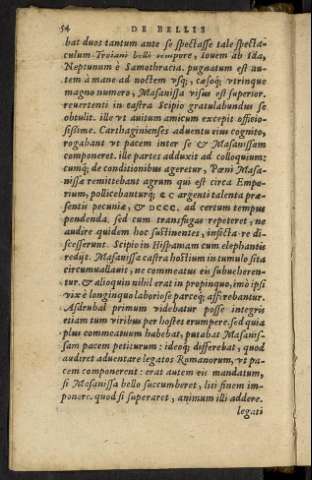 54 DE BELLIS
bat duos tantum ante se spectasse tale specta-
culum Troiani belli tempore, Iouem ab Ida,
Neptunum è Samothracia. pugnatum est au-
tem à mane ad noctem vsq;, cæsoq; vtrinque
magno numero, Masanissa visus est superior.
reuertenti in castra Scipio gratulabundus se
obtulit. ille vt auitum amicum excepit officio-
sissime. Carthaginienses aduentu eius cognito,
rogabant vt pacem inter se & Masanissam
componeret. ille partes adduxit ad colloquium:
cumq; de conditionibus ageretur, Pœni Masa-
nissæ remittebant agrum qui est circa Empo-
rium, pollicebanturq; CC argenti talenta præ-
sentis pecuniæ, & DCCC. ad certum tempus
pendenda. sed cum transfugas repeteret, ne
audire quidem hoc sustinentes, infecta re di-
scesserunt. Scipio in Hispaniam cum elephantis
redijt. Masanissa castra hostium in tumulo sita
circumuallauit, ne commeatus eis subueheren-
tur. & alioquin nihil erat in propinquo, imò ipsi
vix è longinquo laboriose parceq; afferebantur.
Asdrubal primum videbatur posse integris
etiam tum viribus per hostes erumpere. sed quia
plus commeatuum habebat, putabat Masanis-
sam pacem petiturum: ideoq; differebat, quod
audiret aduentare legatos Romanorum, vt pa-
cem componerent: erat autem eis mandatum,
si Masanissa bello succumberet, liti finem im-
ponere. quod si superaret, animum illi addere.
legati